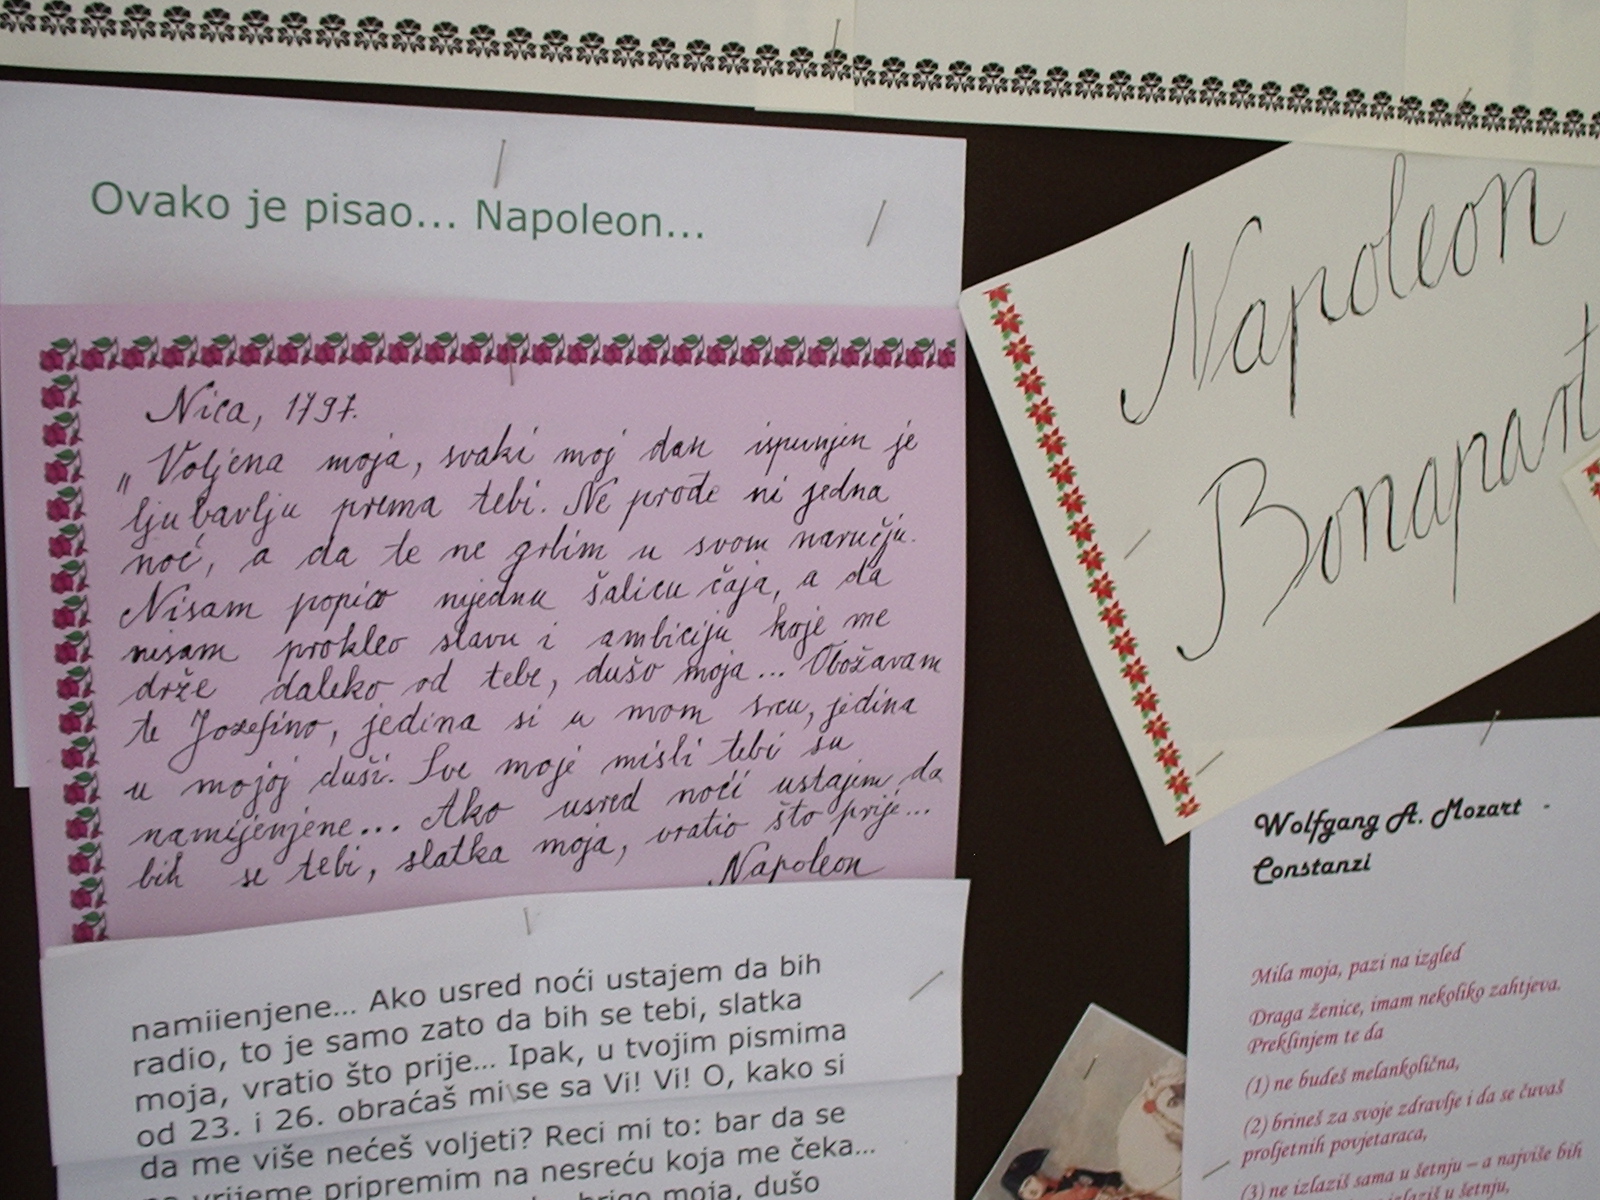 Ovako je pisao... Napoleon...
Nica, 1797.
„Voljena moja, svaki moj dan ispunjen je
ljubavlju prema tebi. Ne prođe ni jedna
noć, a da te ne grlim u svom naručju.
Nisam popio nijednu šalicu čaja, a da
nisam prokleo slavu i ambiciju koje me
drže daleko od tebe, dušo moja... Obožavam
te Jozefino, jedina si u mom srcu, jedina
u mojoj duši. Sve moje misli tebi su
namijenjene... Ako usred noći ustajem, da
bih se tebi, slatka moja, vratio što prije...
Napoleon
namiienjene... Ako usred noći ustajem da bih
radio, to je samo zato da bih se tebi, slatka
moja, vratio što prije... Ipak, u tvojim pismima
od 23. i 26. obraćaš mi se sa Vi! Vi! O, kako si
da me više nećeš voljeti? Reci mi to: bar da se
vrijeme pripremim na nesreću koja me čeka...
brigo moja, dušo
Napoleon
Bonapart
Wolfgang A. Mozart -
Constanzi
Mila moja, pazi na izgled
Draga ženice, imam nekoliko zahtjeva.
Preklinjem te da
(1) ne budeš melankolična,
(2) brineš za svoje zdravlje i da se čuvaš
proljetnih povjetaraca,
(3) ne izlaziš sama u šetnju – a najviše bih
u šetnju,